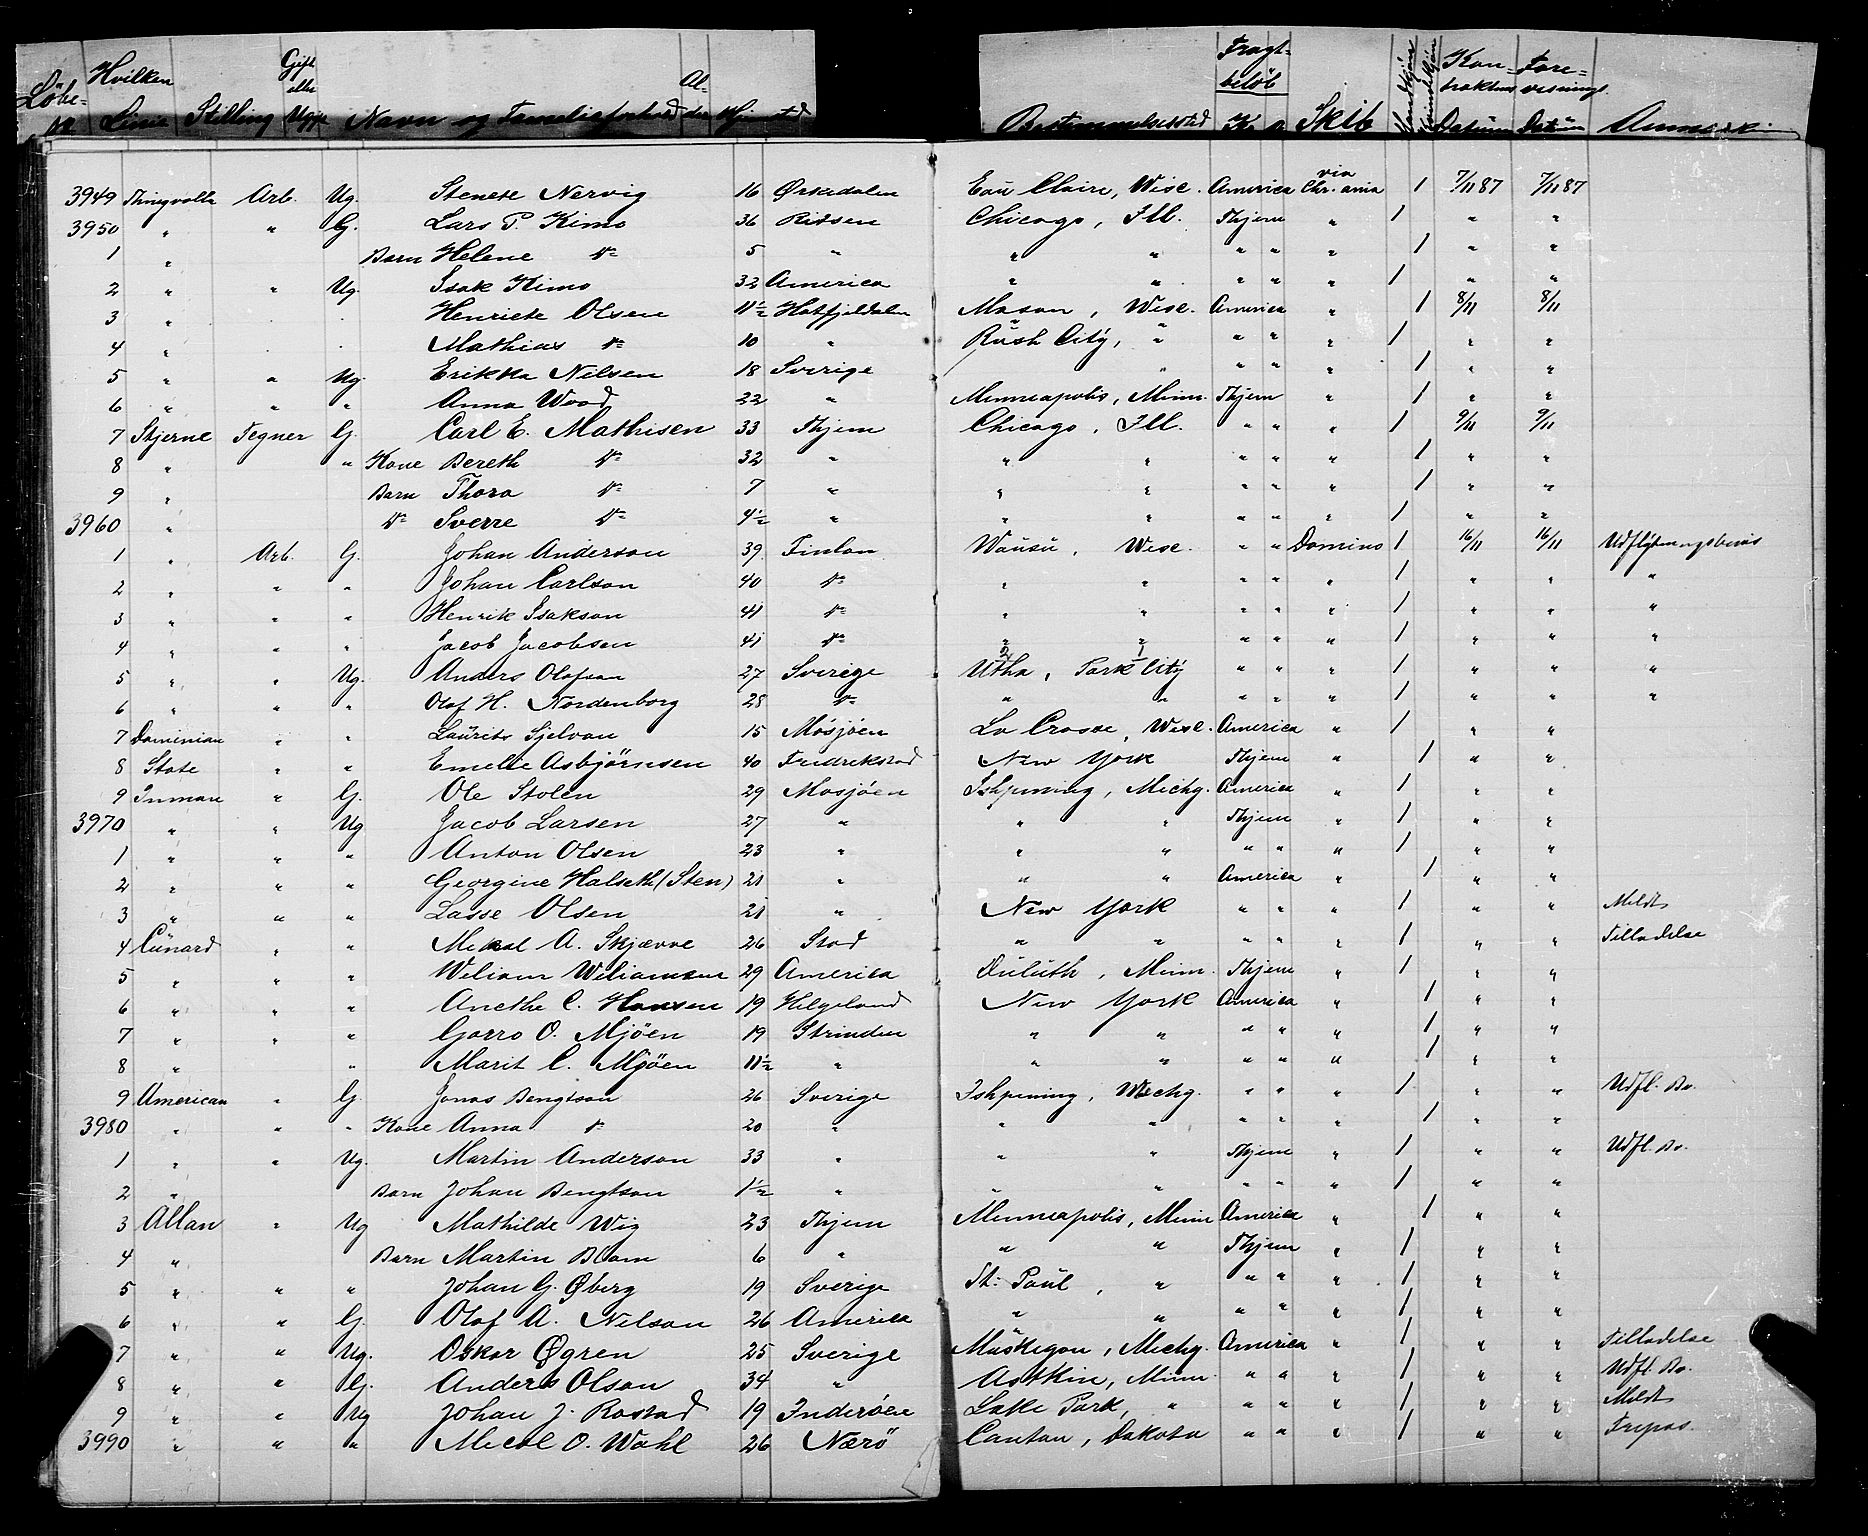 Löbe- No Hvilken Linie Stilling Gift eller Ugift Navn og Familieforhold Al- der Hjemsted Bestemmelsessted Fragt- beløb Kr Ø Skib Mandkjøn Kvindekjøn Kon- trakten Datum Fore- visnings. Datum Anmærk.
3949 Thingvalla Arb. Ug. Stenete Nervig 16 Ørkedalen Eau Claire, Wisc. America via Chr.ania 1 7/11 87 7/11 87
3950 " " G. Lars P. Kimo 36 Ridsen Chicago, Ill. Thjem " 1 " "
1 " Barn Helene do 5 " " " " " " 1 " "
2 " " Ug. Isak Kimo 32 America " " " " " 1 " "
3 " Henriete Olsen 11½ Hatfjeldalen Mason, Wisc. America " 1 8/11 8/11
4 " Mathias do 10 " Rush City, " " " " 1 " "
5 " " Ug. Erikka Nelsen 18 Sverige " " " " 1 " "
6 " " " Anna Wood 22 " Minneapolis, Minn. Thjem " 1 " "
7 Stjerne Tegner G. Carl E. Mathisen 33 Thjem Chicago, Ill. " " " 1 9/11 9/11
8 " " Kone Bereth do 32 " " " " " " 1 " "
9 " Barn Thora do 7 " " " " " " 1 " "
3960 " do Sverre do 4½ " " " " " " 1 " "
1 " Arb. G. Johan Anderson 39 Finlan Wausu, Wisc. " " Domino 1 16/11 16/11 Udflytningsbevis
2 " " " Johan Carlson 40 do " " " " " 1 " " "
3 " " " Henrik Isakson 41 do " " " " " 1 " " "
4 " " " Jacob Jacobsen 41 do " " " " " 1 " " "
5 " " Ug. Anders Olofson 27 Sverige 2 Utha, 1 Park City " " " 1 " " "
6 " " " Olof H. Nordenborg 28 do " " " " " 1 " " "
7 Dominian " " Laurits Sjelvan 15 Mosjøen La Crosse, Wisc. America " 1 " "
8 State " " Emelie Asbjörnsen 40 Fredrikstad New York Thjem " 1 " "
9 Inman " G. Ole Stolen 29 Mosjøen Ishpiming, Michg. America " 1 " "
3970 " " Ug Jacob Larsen 27 " " " Thjem " 1 " "
1 " " " Anton Olsen 23 " " " " " " 1 " "
2 " " " Georgine Halseth (Sten) 21 " " " America " 1 " "
3 " " " Lasse Olsen 21 " New York " " " 1 " " Meldt
4 Cunard " " Mekal A. Skjævve 26 Stod " " " " " 1 " " Tilladelse
5 " " " Weliam Weliamsen 29 America Duluth, Minn. Thjem " 1 " "
6 " " " Anethe C. Hansen 19 Helgeland New York America " 1 " "
7 " " " Gorro O. Mjöen 19 Strinden " " " " " 1 " "
8 " " Marit C. Mjöen 11½ " " " " " " 1 " "
9 American " G. Jonas Bengtson 26 Sverige Ishpiming, Mechg. " " " 1 " " Udfl. Bv.
3980 " " " Kone Anna do 20 " " " " " " 1 " "
1 " " Ug. Martin Anderson 33 " " " Thjem " 1 " " Udfl. Bv.
2 " Barn Johan Bengtson 1½ " " " " " " 1 " "
3 Allan " Ug Mathilde Wig 23 Thjem Minneapolis, Minn America " 1 " "
4 " Barn Martin Blom 6 " " " Thjem " 1 " "
5 " " " Johan G. Øberg 19 Sverige St. Paul, " " " " 1 " "
6 " " G. Olof A. Nelson 26 America " " " " " 1 " "
7 " " Ug. Oskar Øgren 25 Sverige Muskegon, Michg. America " 1 " " Tilladelse
8 " " G. Anders Olson 34 " Astkin, Minn. " " " 1 " " Udfl. Bv.
9 " " Ug Johan J. Rostad 19 Inderöen Lake Park, " " " " 1 " " Meldt
3990 " " " Mecal O. Wahl 26 Nærö Canton, Dakota " " " 1 " " Frepas